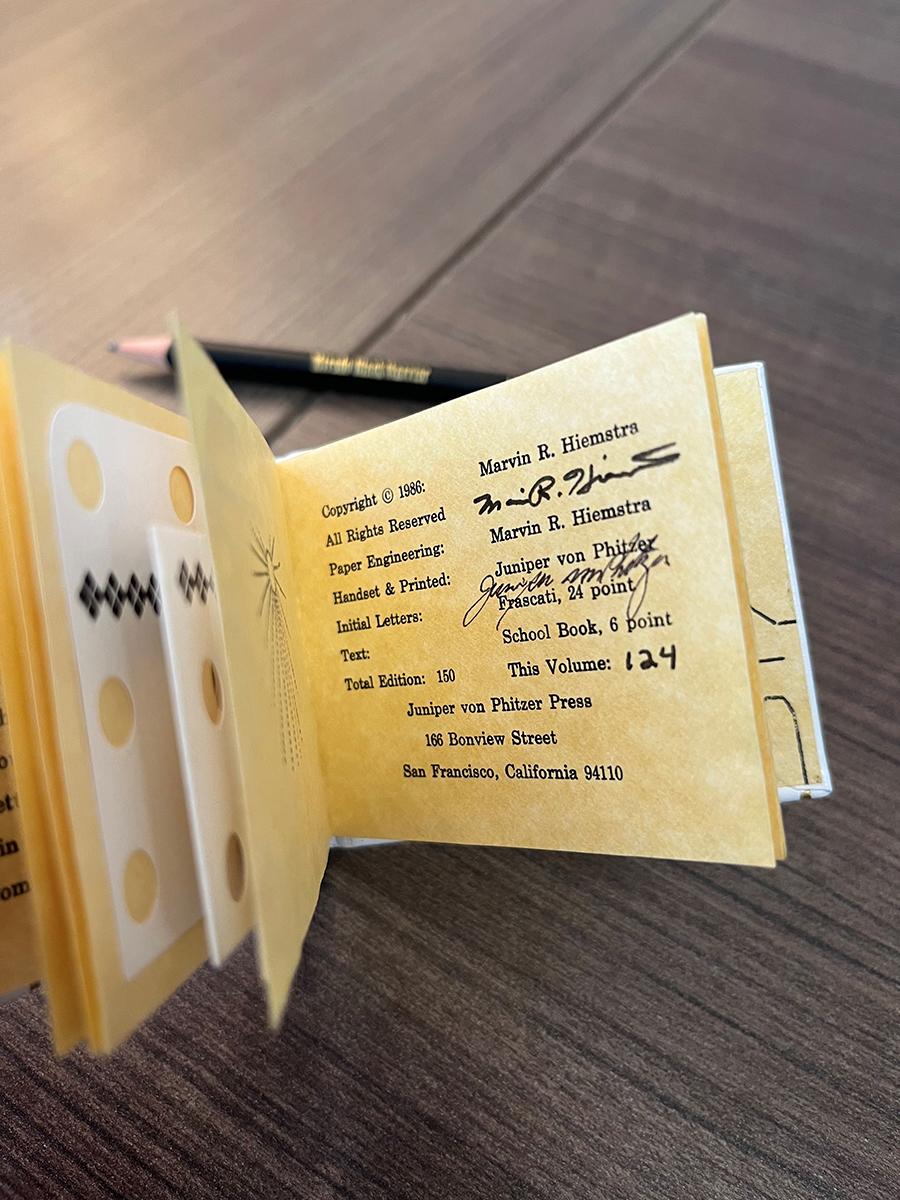 Copyright © 1986: Marvin R. Hiemstra
All Rights Reserved Marvin R. Hiemstra
Paper Engineering: Marvin R. Hiemstra
Handset & Printed: Juniper von Phitzer
Juniper von Phitzer
Initial Letters: Frascati, 24 point
Text: School Book, 6 point
Total Edition: 150 This Volume: 124
Juniper von Phitzer Press
166 Bonview Street
San Francisco, California 94110